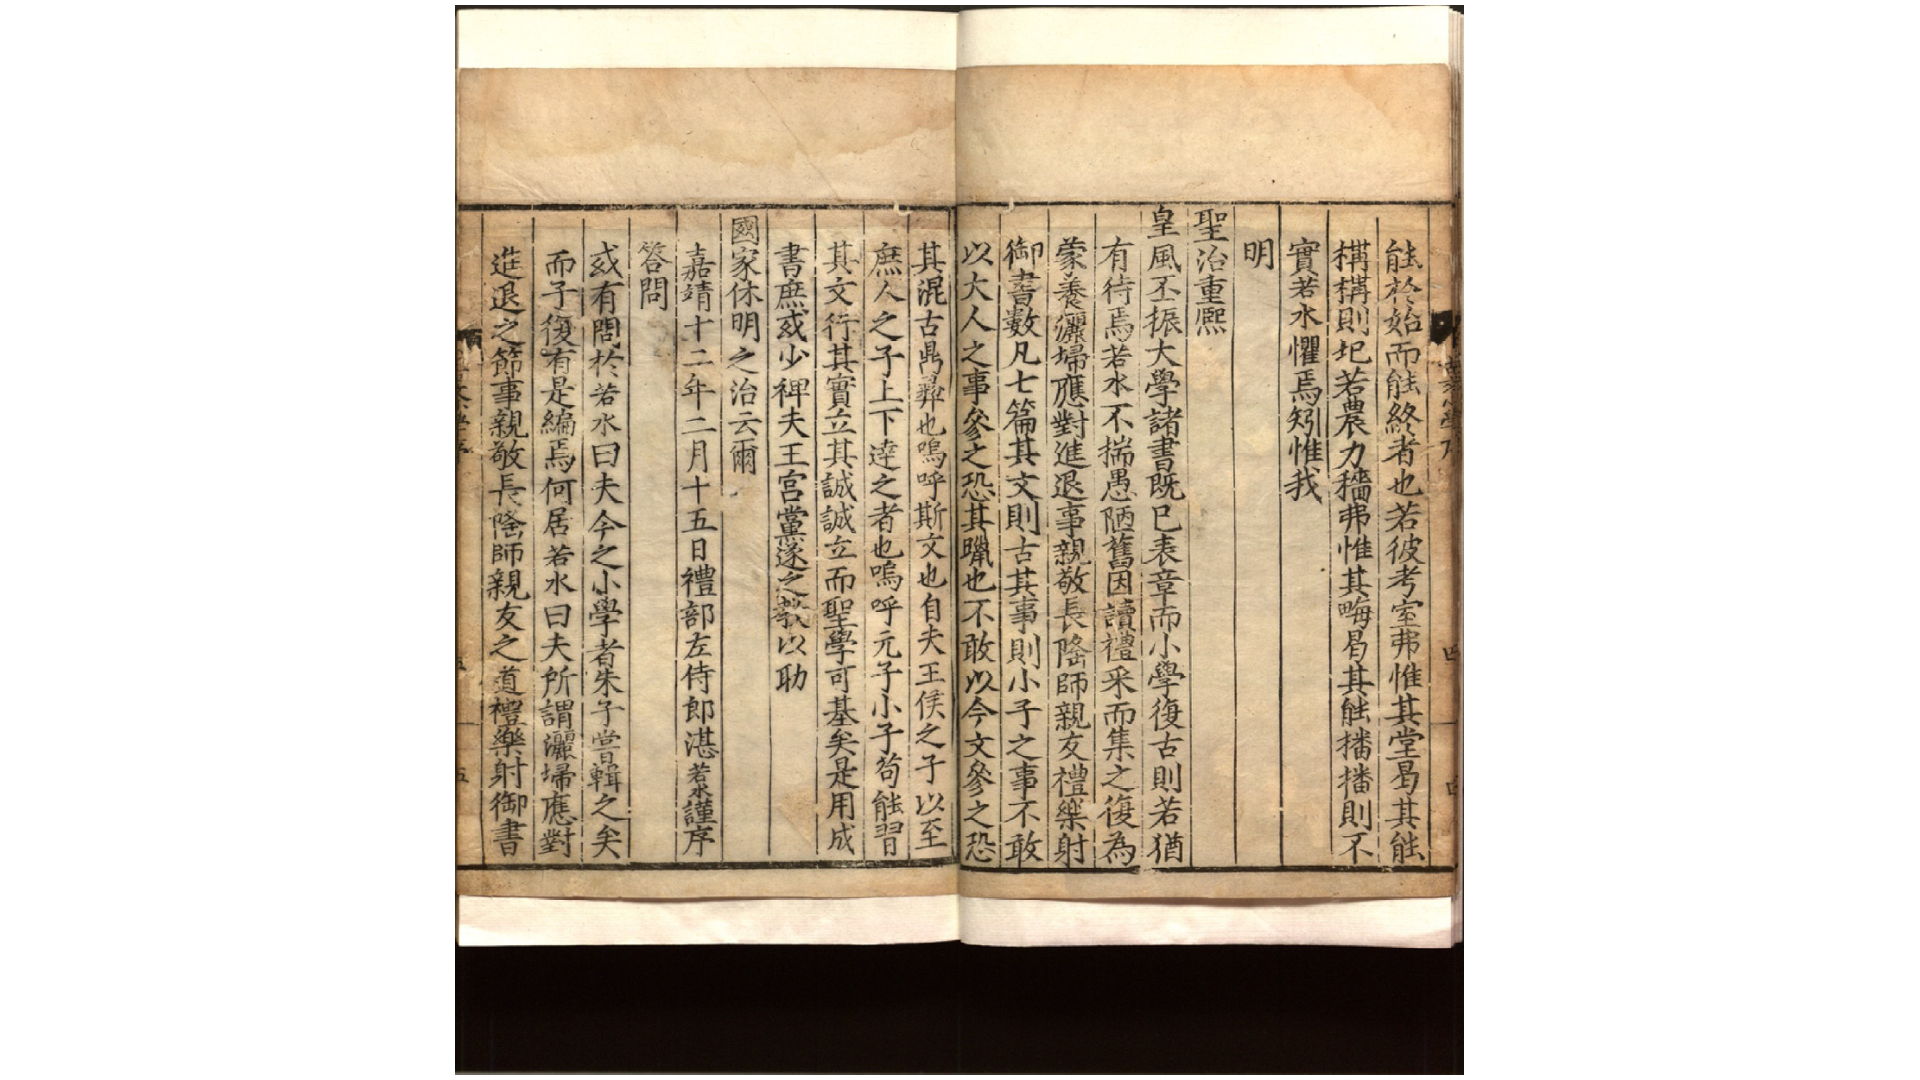 能於始而能終者也若彼考室弗惟其堂曷其能
構構則圮若農力穡弗惟其畮曷其能播播則不
實若水懼焉矧惟我
明
聖治重熈
皇風丕振大學諸書既已表章而小學復古則若猶
有待焉若水不揣愚陋舊因讀禮采而集之復為
蒙養灑埽應對進退事親敬長隆師親友禮樂射
御書數凡七篇其文則古其事則小子之事不敢
以大人之事參之恐其躐也不敢以今文參之恐
其混古鼎彛也嗚呼斯文也自夫王侯之子以至
庶人之子上下逹之者也嗚呼元子小子茍能習
其文行其實立其誠誠立而聖學可基矣是用成
書庶或少裨夫王宮黨遂之教以助
國家休明之治云爾
嘉靖十二年二月十五日禮部左侍郎湛若水謹序
答問
或有問於若水曰夫今之小學者朱子嘗輯之矣
而子復有是編焉何居若水曰夫所謂灑埽應對
進退之節事親敬長隆師親友之道禮樂射御書